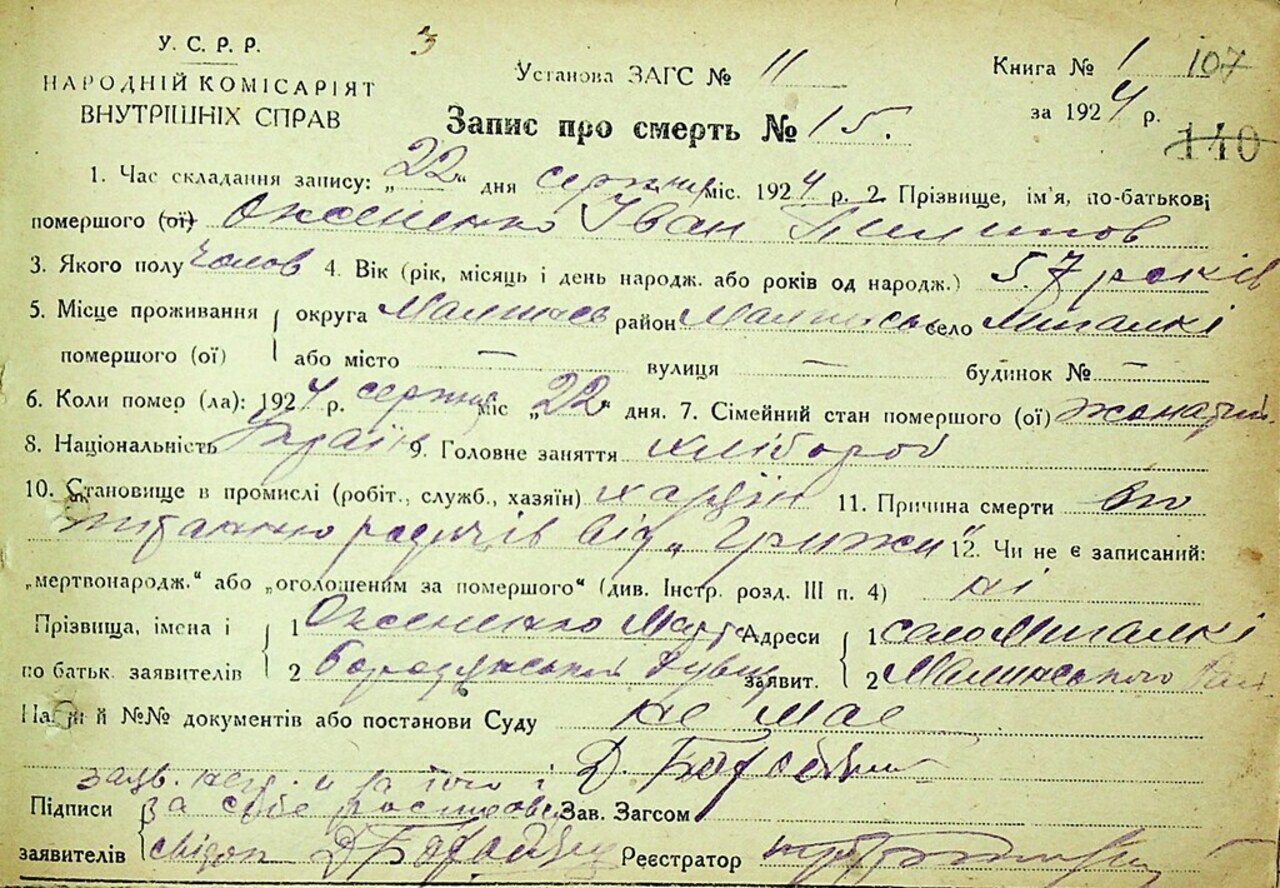 У. С. Р. Р.
НАРОДНІЙ КОМІСАРІЯТ
ВНУТРІШНІХ СПРАВ
3
Установа ЗАГС № 11
Книга № 1 107
за 1924 р.
140
Запис про смерть № 15.
1. Час складання запису: „22“ дня серпня міс. 1924 р. 2. Прізвище, ім'я, по-батькові
помершого (ої) Оксененко Іван Пилипов
3. Якого полу чолов 4. Вік (рік, місяць і день народж. або років од народж.) 57 років
5. Місце проживання округа Малинсь район Малинсь село Мигалкі
помершого (ої) або місто — вулиця — будинок № —
6. Коли помер (ла): 1924 р. серпня міс „22“ дня. 7. Сімейний стан помершого (ої) жонатий.
8. Національність Украін 9. Головне заняття хлібороб
10. Становище в промислі (робіт., служб., хазяїн) 11. Причина смерти
родичів від „Грижи“ 12. Чи не є записаний:
„мертвонародж.“ або „оголошеним за помершого“ (див. Інстр. розд. III п. 4) ні
Прізвища, імена і 1 Оксененко Адреси 1 село Мигалкі
по батьк. заявителів 2 заявит. 2 Малинського
№№ документів або постанови Суду не має
Д.
за того і
Підписи за себе Зав. Загсом
заявителів свідок Д Реєстратор